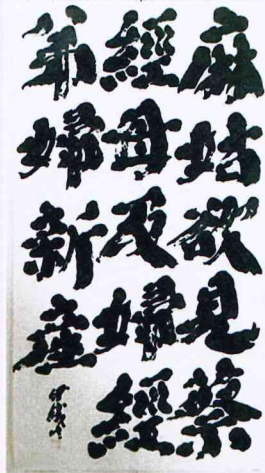 麻姑欲見蔡
經母及婦經
弟婦新產